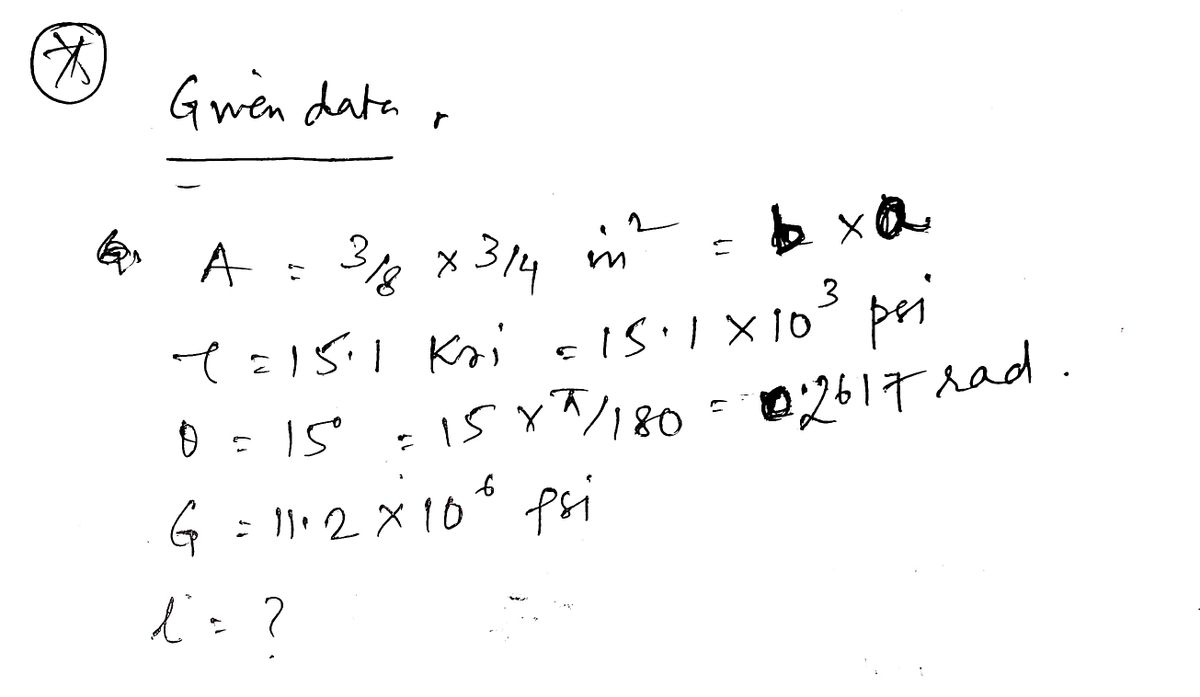 Given data,
A = 3/8 × 3/4 in² = b × a
τ = 15.1 Ksi = 15.1 × 10³ psi
θ = 15° = 15 × π/180 = 0.2617 rad.
G = 11.2 × 10⁶ psi
l = ?